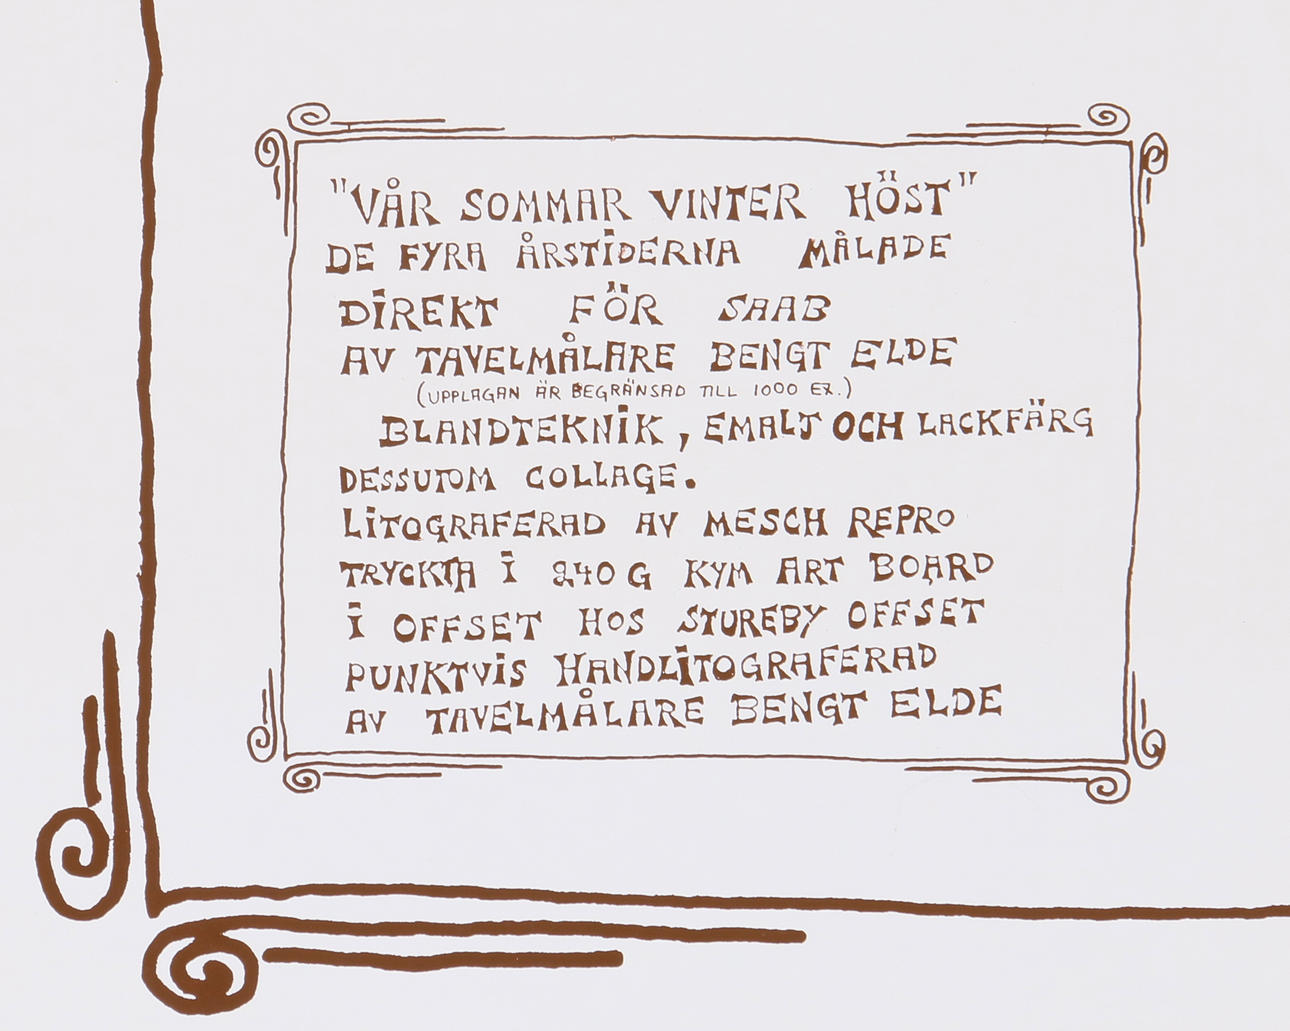 "VÅR SOMMAR VINTER HÖST"
DE FYRA ÅRSTIDERNA MÅLADE
DIREKT FÖR SAAB
AV TAVELMÅLARE BENGT ELDE
(UPPLAGAN ÄR BEGRÄNSAD TILL 1000 EX.)
BLANDTEKNIK, EMALJ OCH LACKFÄRG
DESSUTOM COLLAGE.
LITOGRAFERAD AV MESCH REPRO
TRYCKTA I 240 G KYM ART BOARD
I OFFSET HOS STUREBY OFFSET
PUNKTVIS HANDLITOGRAFERAD
AV TAVELMÅLARE BENGT ELDE